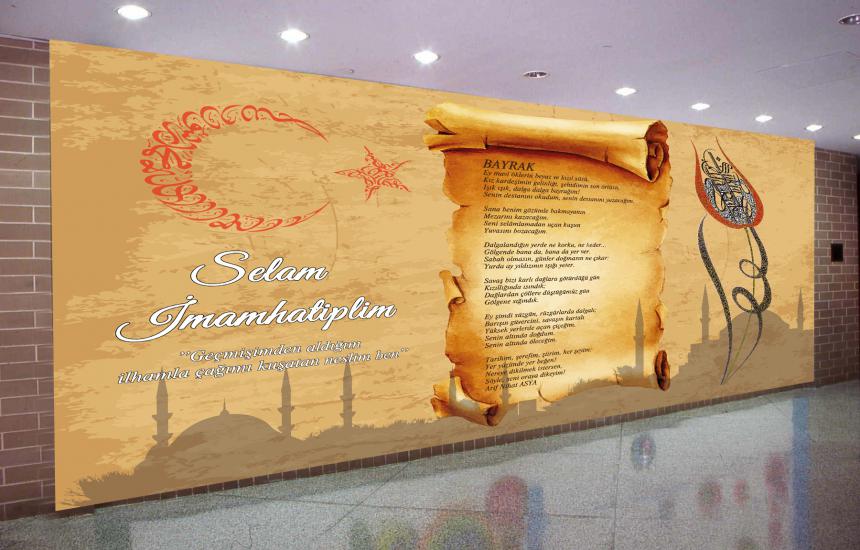 Selam
İmamhatiplim
"Geçmişimden aldığım
ilhamla çağımı kuşatan neslim ben"
BAYRAK
Ey mavi göklerin beyaz ve kızıl süsü,
Kız kardeşimin gelinliği, şehidimin son örtüsü,
Işık ışık, dalga dalga bayrağım!
Senin destanını okudum, senin destanını yazacağım.
Sana benim gözümle bakmayanın
Mezarını kazacağım.
Seni selâmlamadan uçan kuşun
Yuvasını bozacağım.
Dalgalandığın yerde ne korku, ne keder...
Gölgende bana da, bana da yer ver.
Sabah olmasın, günler doğmasın ne çıkar:
Yurda ay yıldızının ışığı yeter.
Savaş bizi karlı dağlara götürdüğü gün
Kızıllığında ısındık;
Dağlardan çöllere düştüğümüz gün
Gölgene sığındık.
Ey şimdi süzgün, rüzgârlarda dalgalı;
Barışın güvercini, savaşın kartalı
Yüksek yerlerde açan çiçeğim.
Senin altında doğdum.
Senin altında öleceğim.
Tarihim, şerefim, şiirim, her şeyim:
Yer yüzünde yer beğen!
Nereye dikilmek istersen,
Söyle, seni oraya dikeyim!
Arif Nihat ASYA